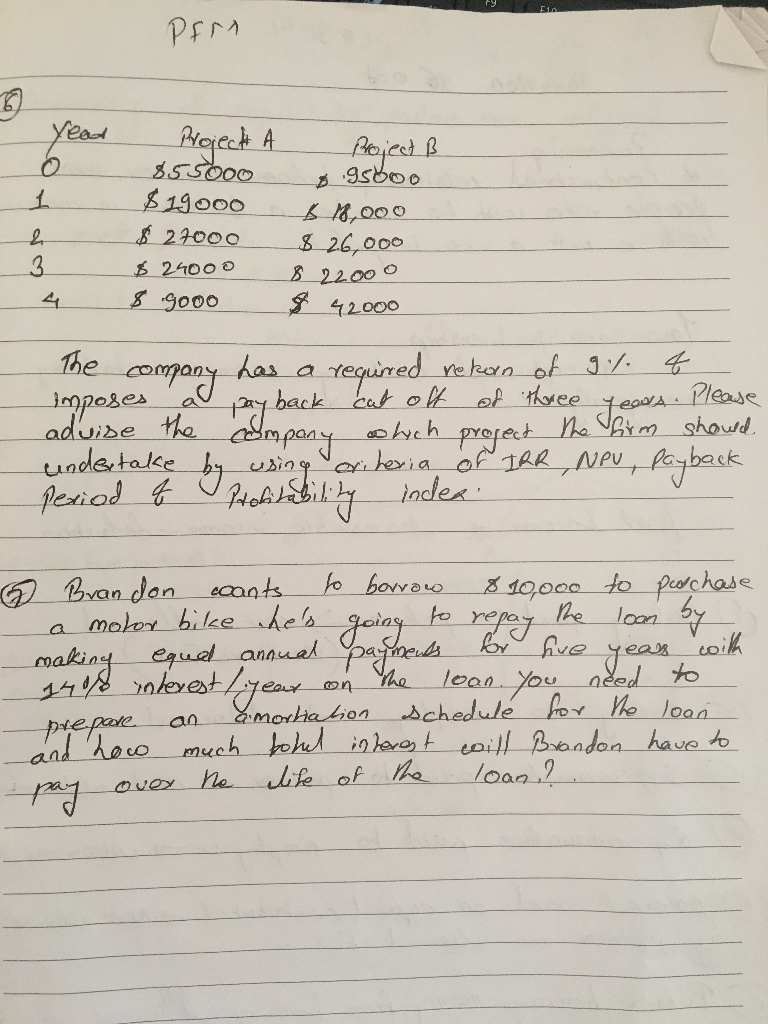 PFM
6
Year Project A Project B
0 $55000 $ 95000
1 $19000 $ 18,000
2 $ 27000 $ 26,000
3 $ 24000 $ 22000
4 $ 9000 $ 42000
The company has a required return of 9% &
imposes a payback cut off of three years. Please
advise the company which project the firm showd.
undertake by using criteria of IRR, NPV, Payback
Period & Profitability index.
7 Brandon wants to borrow $10,000 to purchase
a motor bike. he's going to repay the loan by
making equal annual payments for five years with
14% interest/year on the loan. You need to
prepare an amortiation schedule for the loan
and how much total interest will Brandon have to
pay over the life of the loan.?
F9
F10